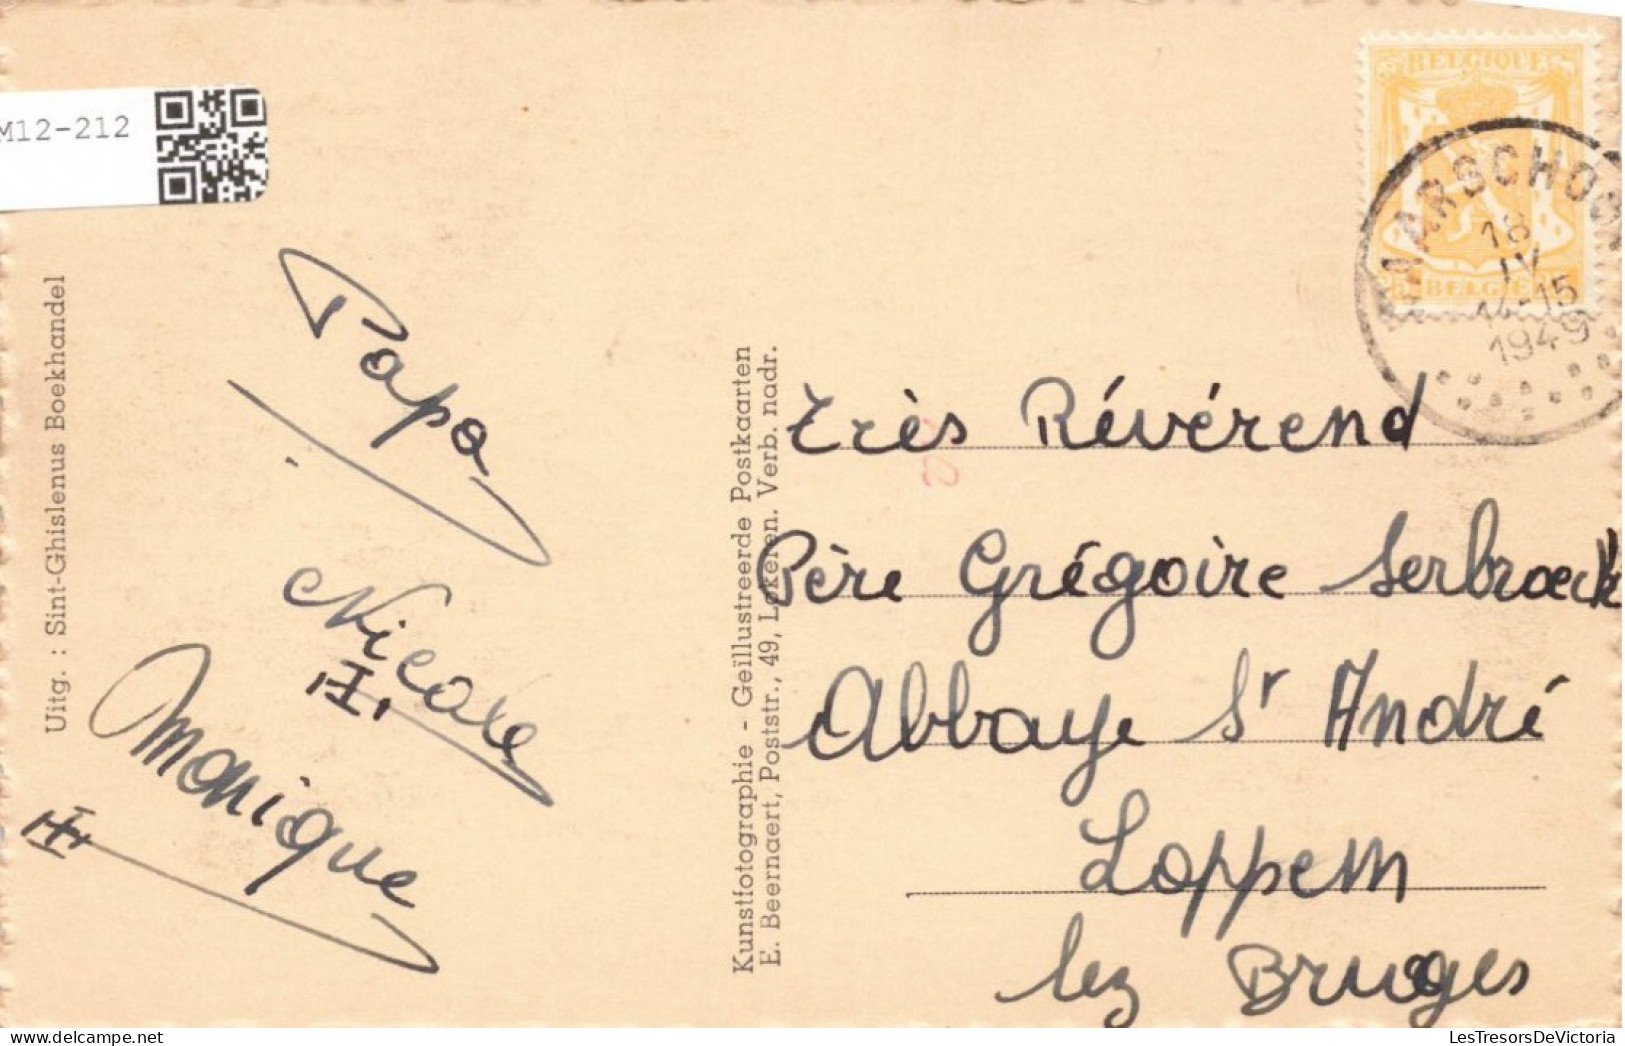 M12-212
BELGIQUE
BELGIË
AARSCHO
18
IV
14-15
1949
Uitg. : Sint-Ghislenus Boekhandel
Papa
Nicole
Monique
Kunstfotographie - Geïllustreerde Postkaarten
E. Beernaert, Poststr., 49, Lokeren. Verb. nadr.
Très Révérend
Père Grégoire Serbroeck
Abbaye St André
Loppem
lez Bruges
LesTresorsDeVictoria